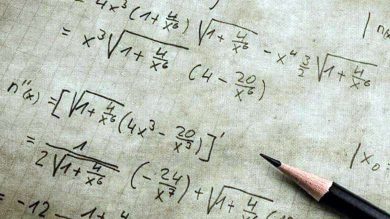 = 4x³(1+4/x⁶)√(1+4/x⁶) - x⁴ 3/2 √(1+4/x⁶)
= x³√(1+4/x⁶) (4 - 20/x⁶)
n''(x) = [√(1+4/x⁶)(4x³ - 20/x³)]'
= 1/(2√(1+4/x⁶)) (-24/x⁷) + √(1+4/x⁶)
x₀
= -12 - 1+4